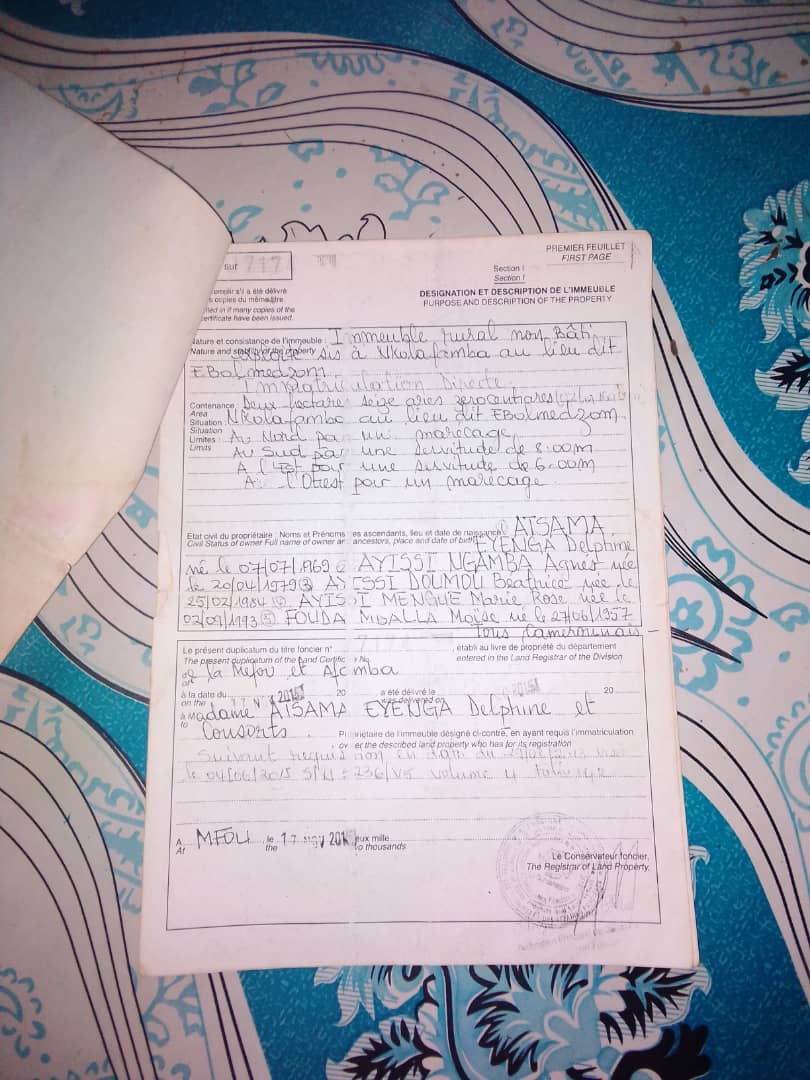 PREMIER FEUILLET
FIRST PAGE
717
Section I
Section I
s copies du même titre
ned in if many copies of the
certificate have been issued.
DESIGNATION ET DESCRIPTION DE L'IMMEUBLE
PURPOSE AND DESCRIPTION OF THE PROPERTY
Nature et consistance de l'immeuble : Immeuble rural non Bâti
Nature and of the property sis à Nkolafamba au lieu dit
EBolmedzom
Immatriculation Directe
Contenance Deux hectares seize ares zerocentiares
Area
Situation Nkolafamba au lieu dit EBolmedzom
Situation
Limites : Au Nord par un marécage
Limits Au Sud par une servitude de 8.00m
A l'Est par une servitude de 6.00m
A l'Ouest par un marécage
Etat civil du propriétaire : Noms et Prénoms es ascendants, lieu et date de naissance ATSAMA
Civil Status of owner Full name of owner an ancestors, place and date of birth EYENGA Delphine
né le 07/07/1969 AYISSI NGAMBA Agnes née
le 20/04/1979 AYISSI DOUMOU Beatrice née le
25/02/1984 AYISSI MENGUE Marie Rose née le
02/09/1973 FOUDA MBALLA Moïse né le 27/06/1957
Tous Camerounais
Le présent duplicatum du titre foncier n° établi au livre de propriété du département
The present duplicatum of the Land Certific No. entered in the Land Registrar of the Division
de la Mefou et Afamba
à la date du 20 a été délivré le 20
on the was delivered on
à Madame ATSAMA EYENGA Delphine et
to
Consorts. Propriétaire de l'immeuble désigné ci-contré, en ayant requis l'immatriculation
ov er the described land property who has for its registration
Suivant requisition en date du
le 04/06/2015 236/V5 volume 4 Folio 142
A MFOU, le 17 eux mille
At the to thousands
Le Conservateur foncier,
The Registrar of Land Property,